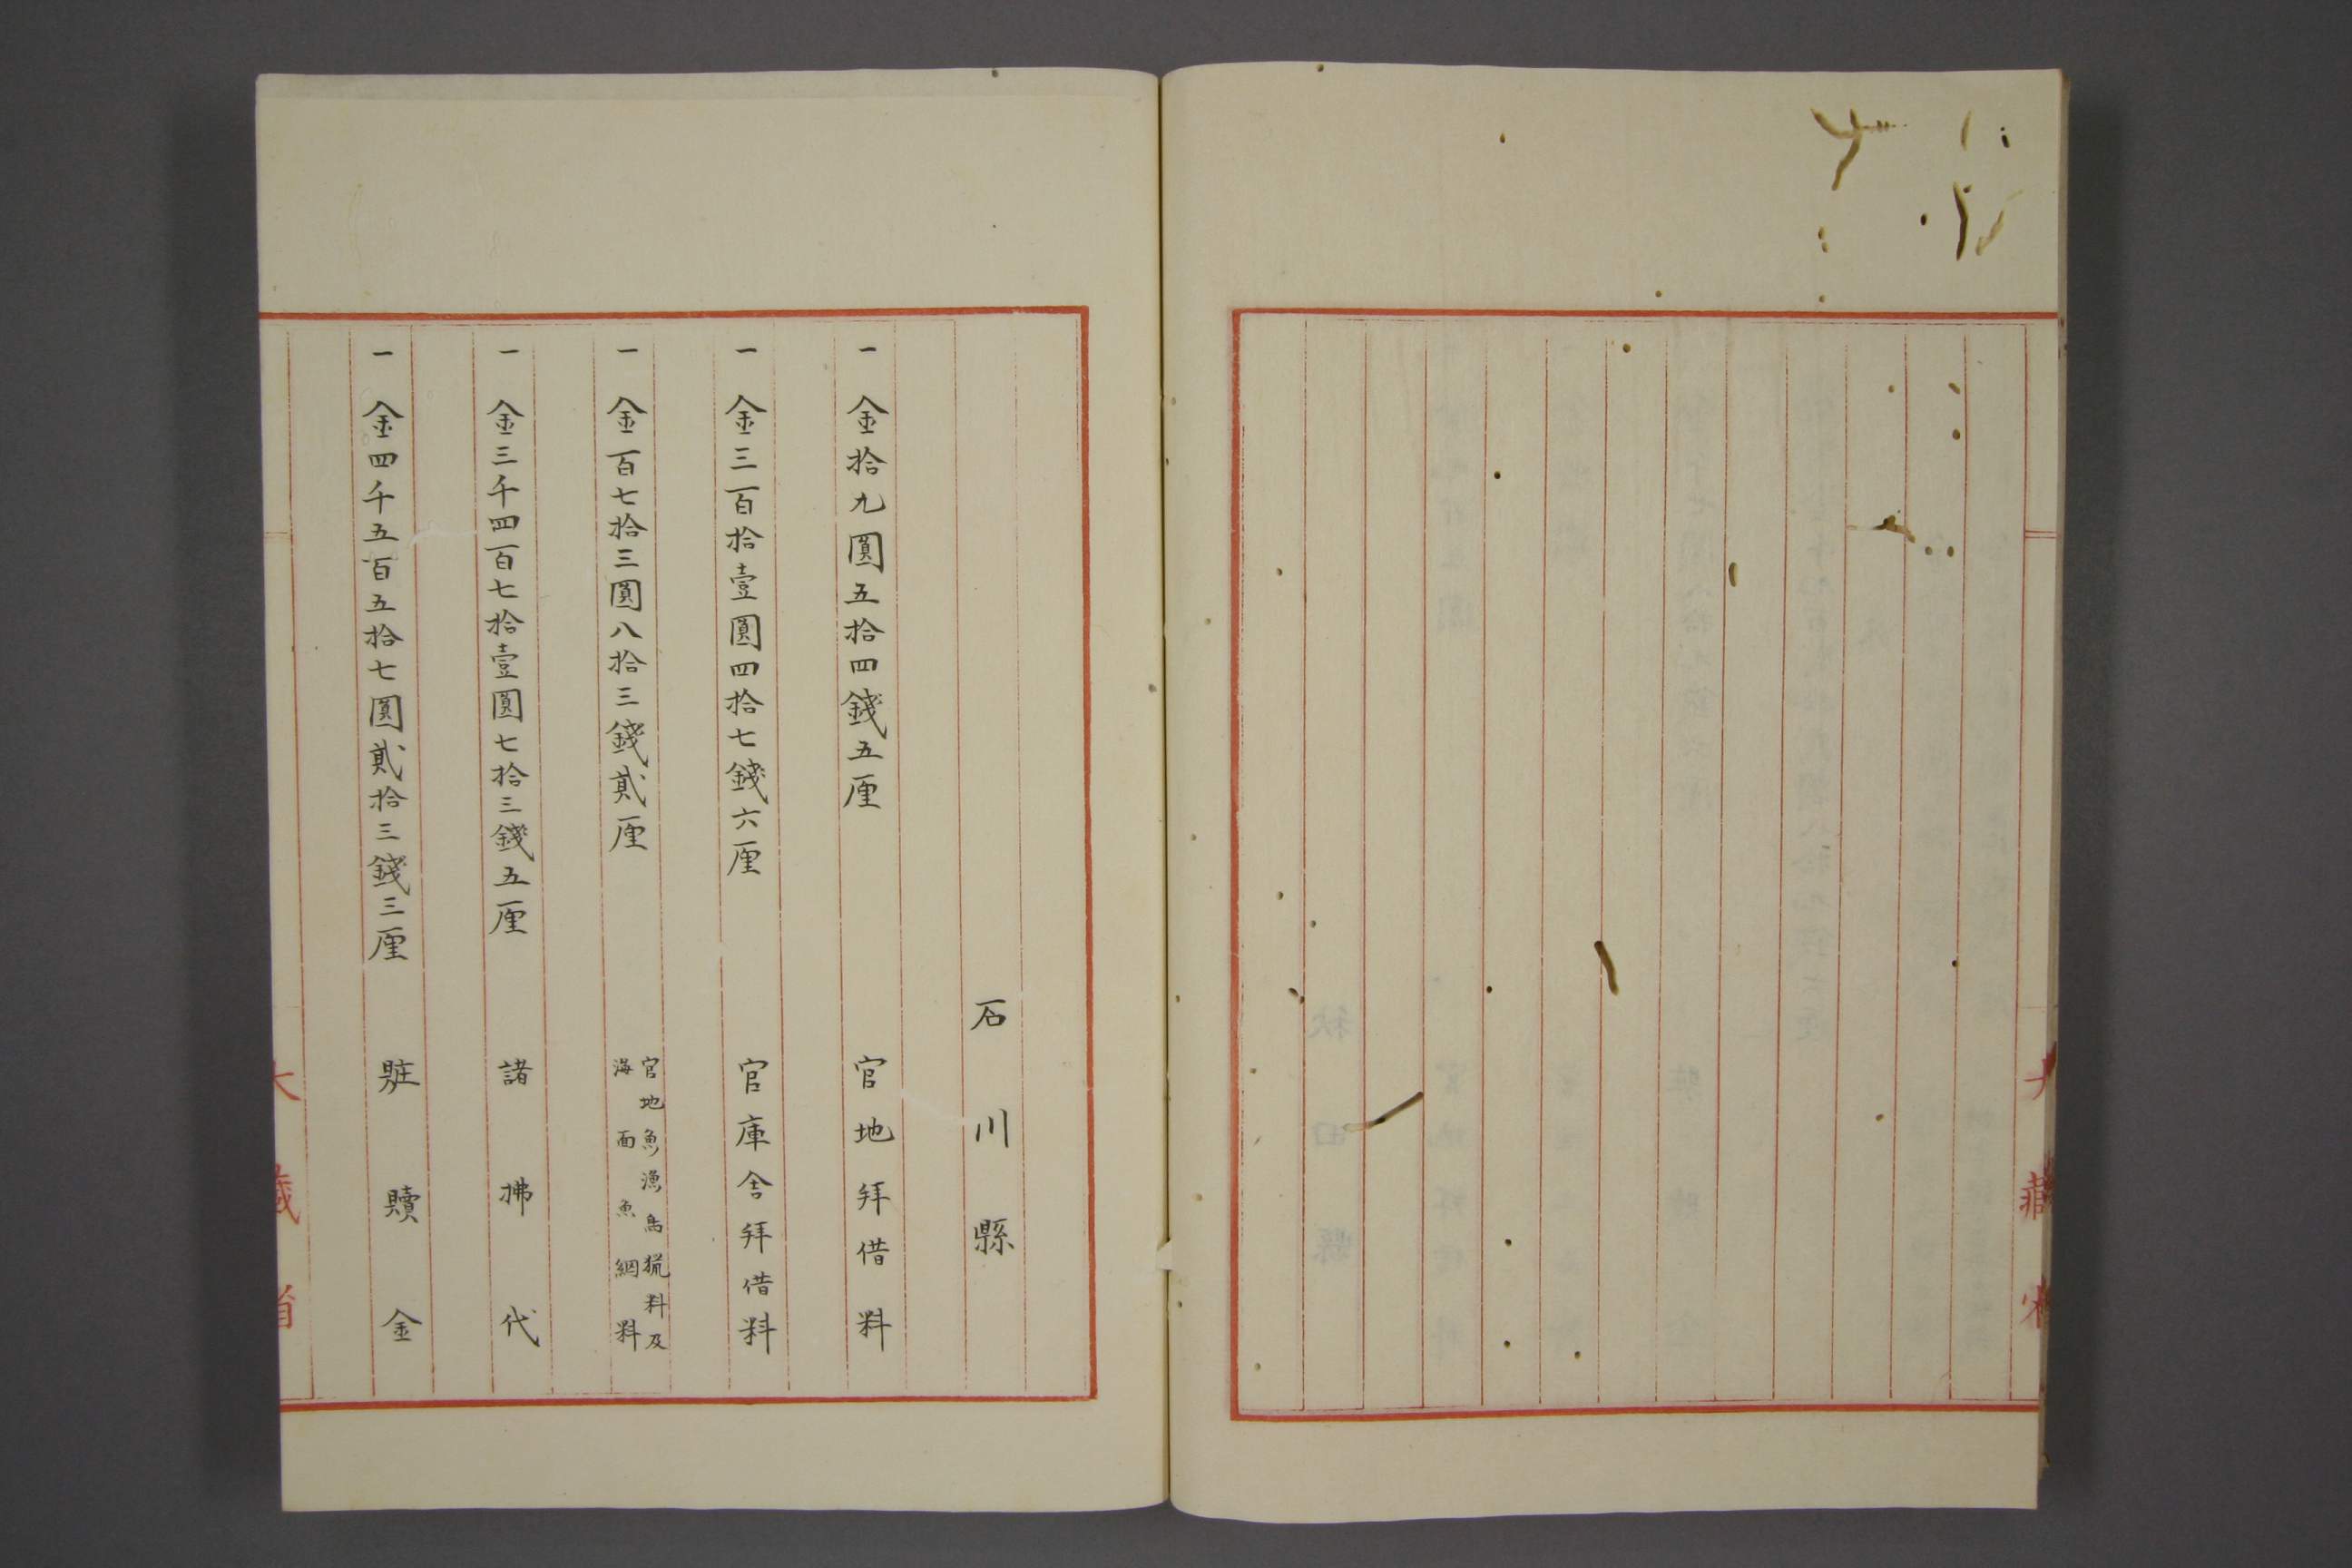 石川縣
一金拾九圓五拾四錢五厘 官地拜借料
一金三百拾壹圓四拾七錢六厘 官庫舍拜借料
一金百七拾三圓八拾三錢貳厘 官地魚漁鳥猟料及
海面魚網料
一金三千四百七拾壹圓七拾三錢五厘 諸拂代
一金四千五百五拾七圓貳拾三錢三厘 贓贖金
大藏省